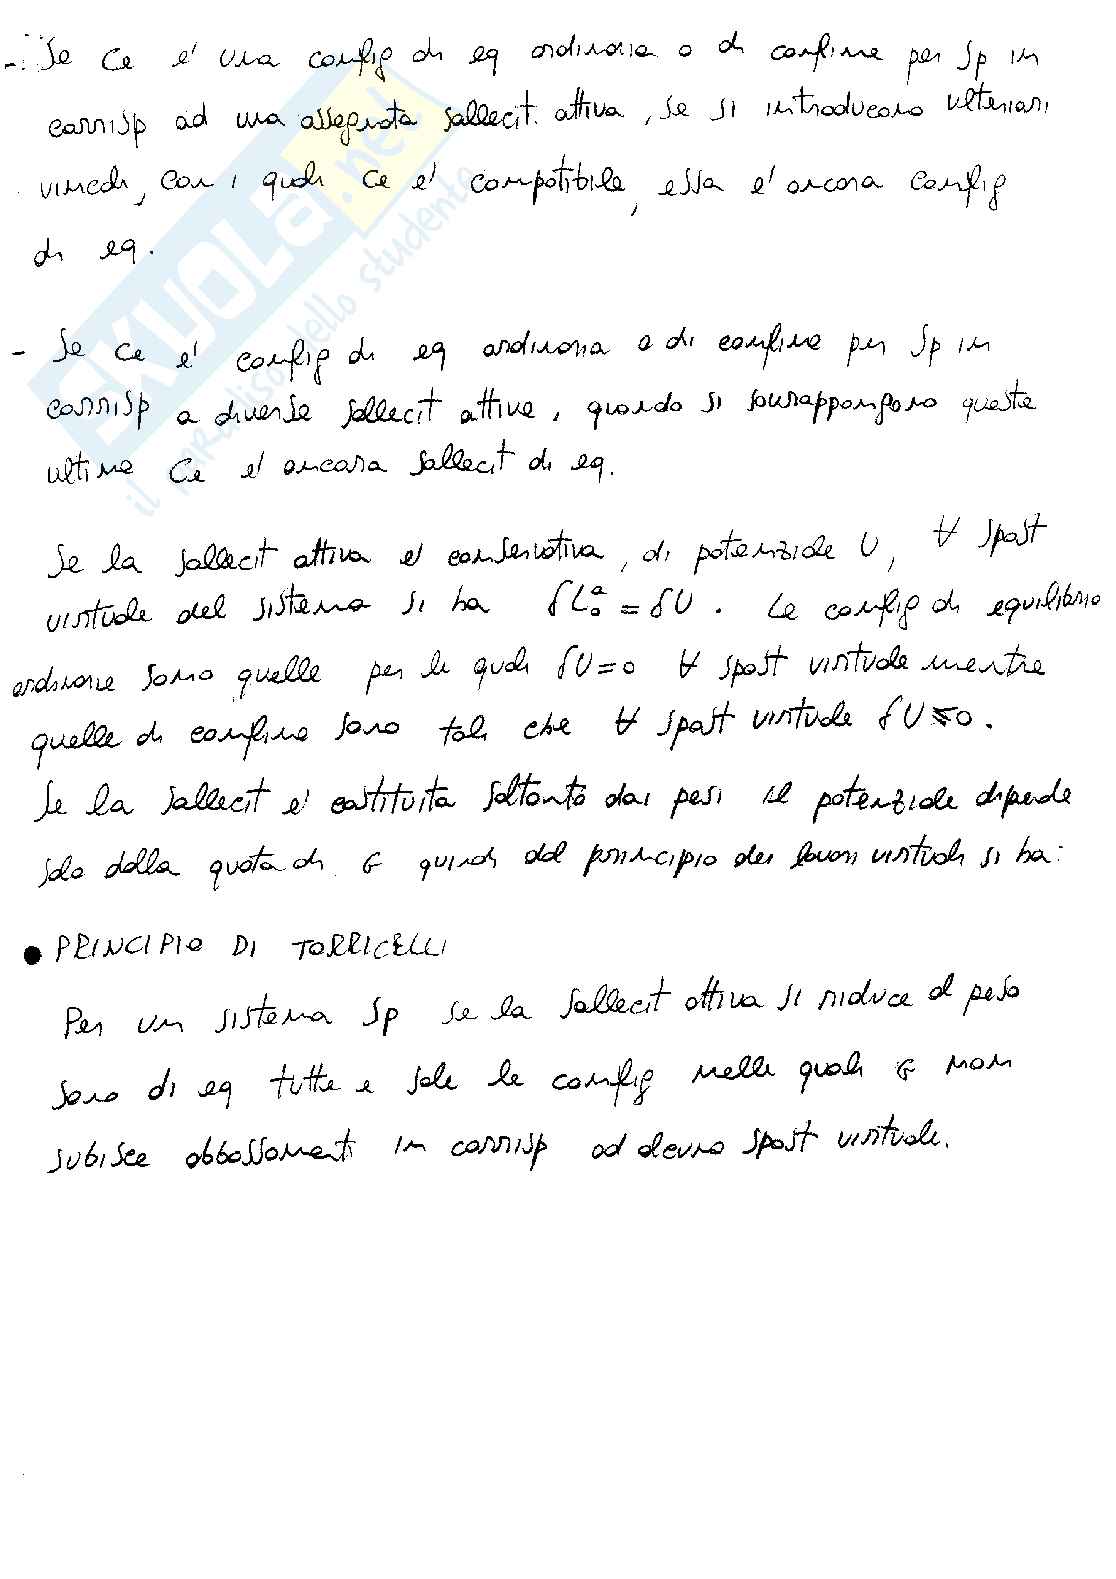 - Se Ce e' una config di eq ordinaria o di confine per Sp in
corrisp ad una assegnata sollecit. attiva, se si introducono ulteriori
vincoli, con i quali Ce e' compatibile, essa e' ancora config
di eq.
- Se Ce e' config di eq ordinaria o di confine per Sp in
corrisp a diverse sollecit attive, quando si sovrappongono queste
ultime Ce e' ancora sollecit di eq.
Se la sollecit attiva e' conservativa, di potenziale U, ∀ spost
virtuale del sistema si ha δLᵃ₀ = δU. Le config di equilibrio
ordinarie sono quelle per le quali δU=0 ∀ spost virtuale mentre
quelle di confine sono tali che ∀ spost virtuale δU≤0.
Se la sollecit e' costituita soltanto dai pesi il potenziale dipende
solo dalla quota di G quindi dal principio dei lavori virtuali si ha:
• PRINCIPIO DI TORRICELLI
Per un sistema Sp se la sollecit attiva si riduce al peso
sono di eq tutte e sole le config nelle quali G non
subisce abbassamenti in corrisp ad alcuno spost virtuale.
SKUOLA.net
il paradiso dello studente